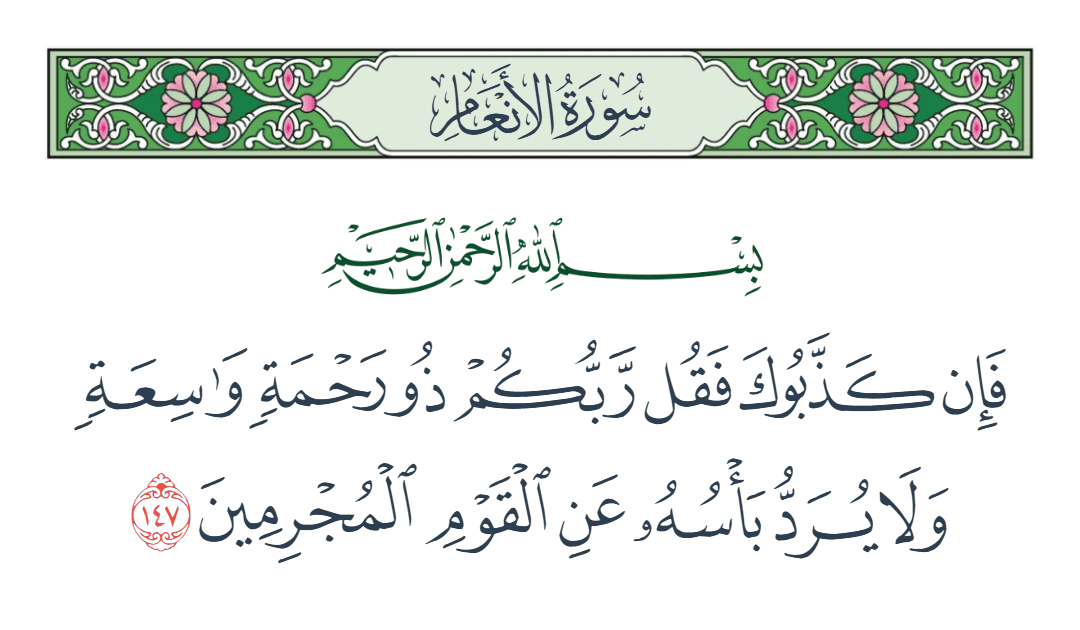 سُورَةُ الأَنْعَامِ
بِسْمِ ٱللَّهِ ٱلرَّحْمَٰنِ ٱلرَّحِيمِ
فَإِن كَذَّبُوكَ فَقُل رَّبُّكُمْ ذُو رَحْمَةٍ وَٰسِعَةٍ
وَلَا يُرَدُّ بَأْسُهُۥ عَنِ ٱلْقَوْمِ ٱلْمُجْرِمِينَ ١٤٧